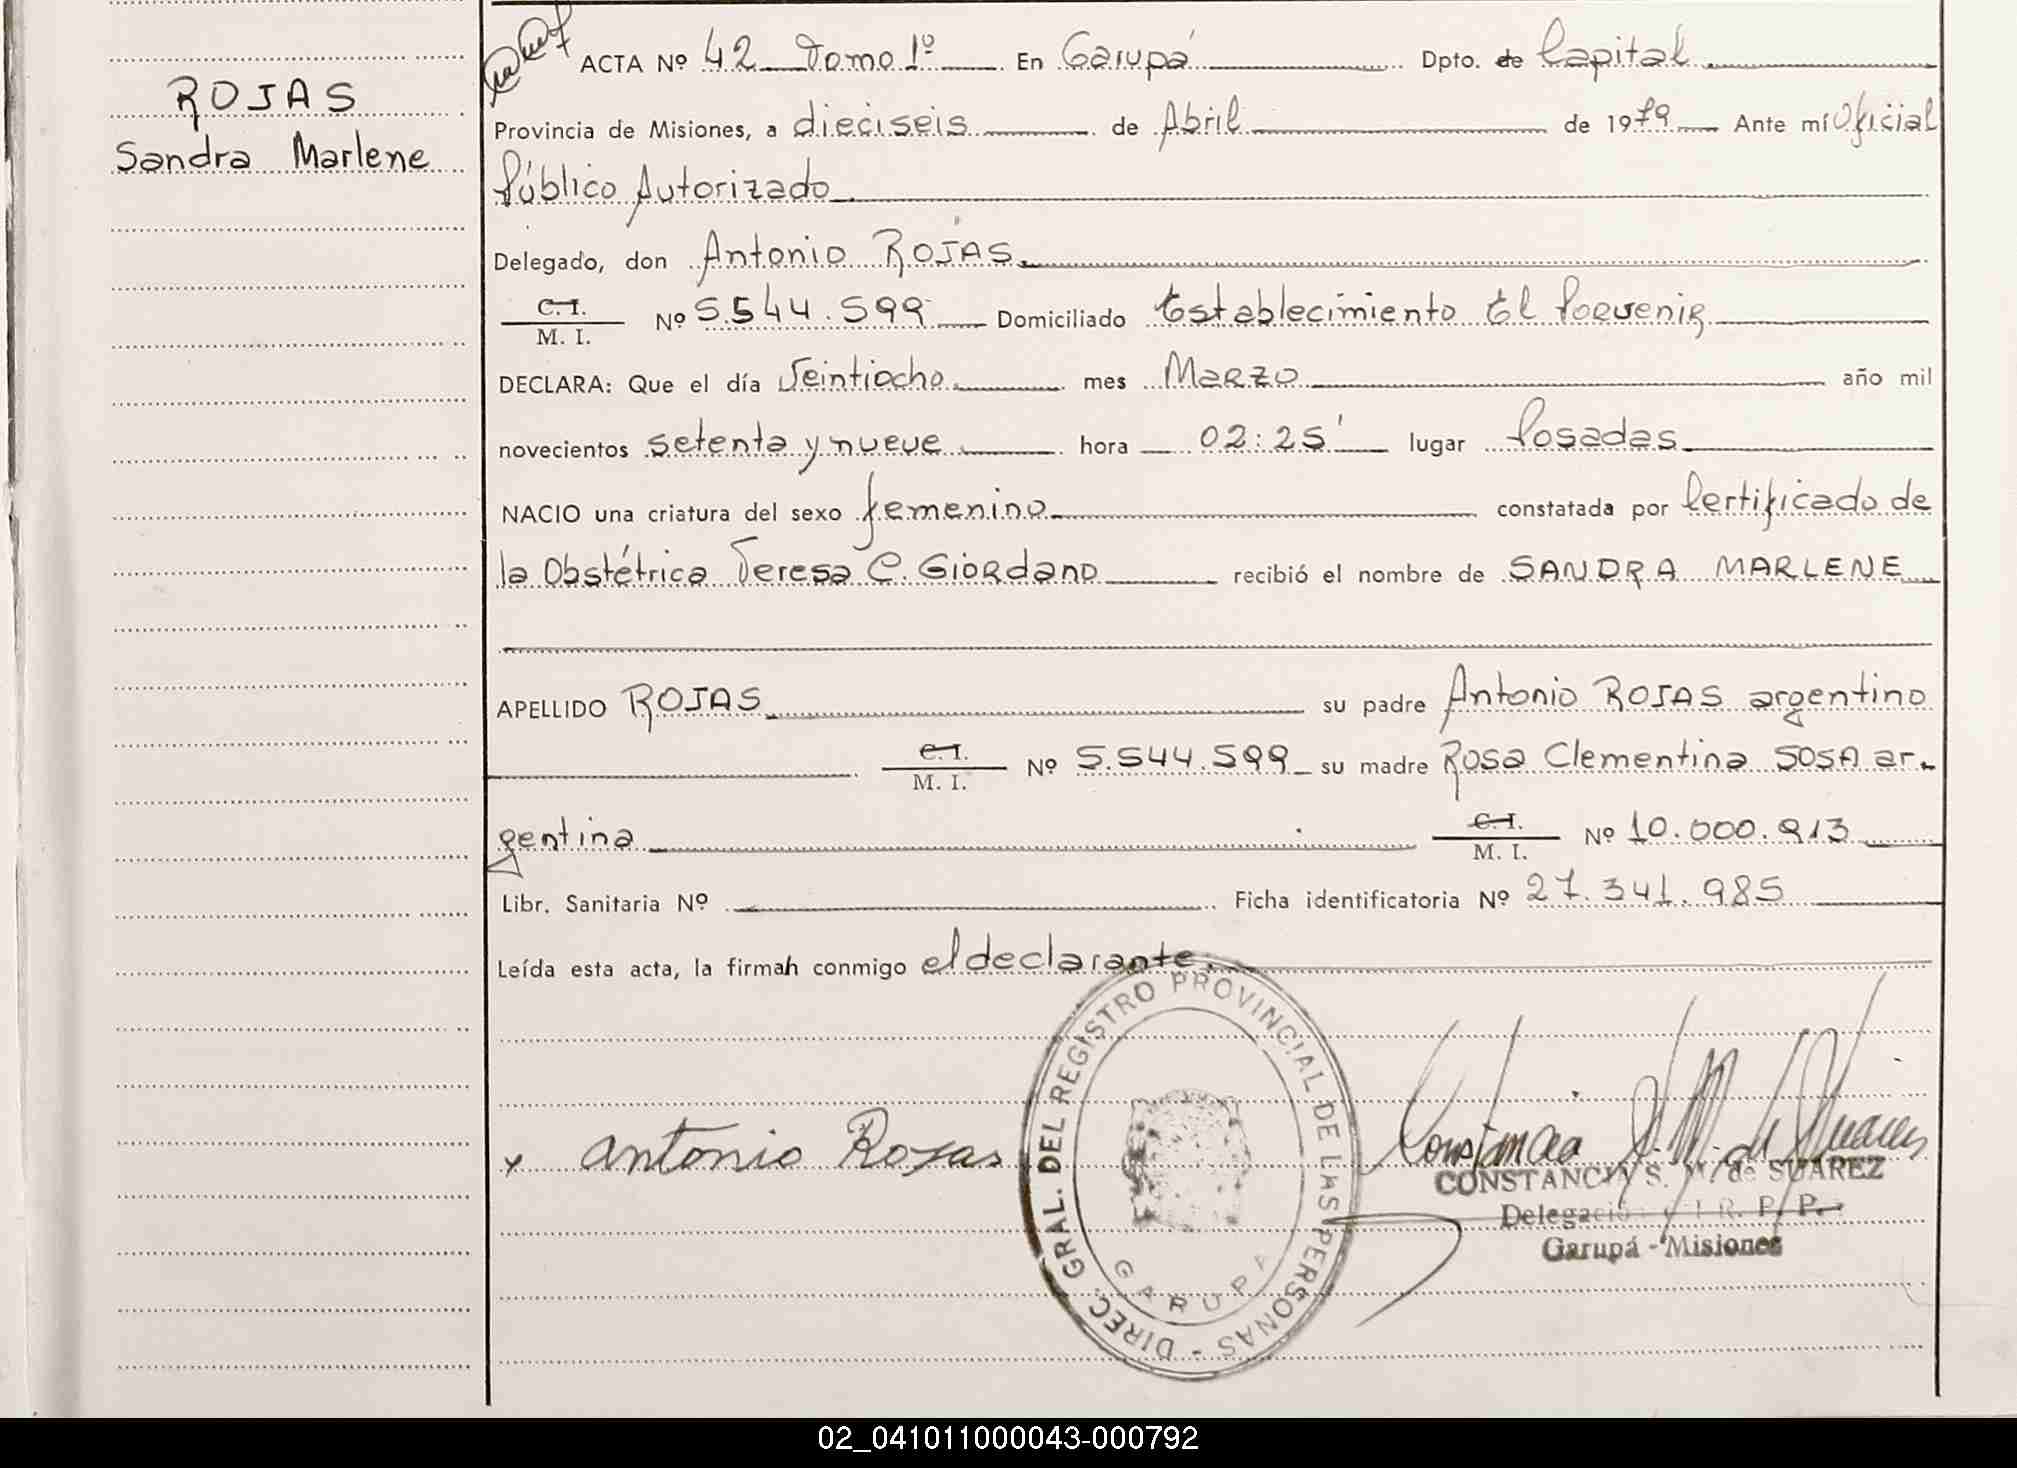 ROJAS
Sandra Marlene
ACTA Nº 42 Tomo 1º En Garupá Dpto. de Capital
Provincia de Misiones, a dieciseis de Abril de 1979 Ante mí Oficial
Público Autorizado
Delegado, don Antonio ROJAS
C. I.
M. I. Nº 5.544.599 Domiciliado Establecimiento El Porvenir
DECLARA: Que el día Veintiocho mes Marzo año mil
novecientos setenta y nueve hora 02:25' lugar Posadas
NACIO una criatura del sexo femenino constatada por Certificado de
la Obstétrica Teresa C. Giordano recibió el nombre de SANDRA MARLENE
APELLIDO ROJAS su padre Antonio ROJAS argentino
C. I.
M. I. Nº 5.544.599 su madre Rosa Clementina SOSA ar-
gentina C. I.
M. I. Nº 10.000.913
Libr. Sanitaria Nº Ficha identificatoria Nº 27.341.985
Leída esta acta, la firmah conmigo el declarante.
DIREC. GRAL. DEL REGISTRO PROVINCIAL DE LAS PERSONAS -
GARUPA
x Antonio Rojas
Constancia S. M. de Suarez
CONSTANCIA S. M. de SUAREZ
Delegación R. P. P.
Garupá - Misiones
02_041011000043-000792